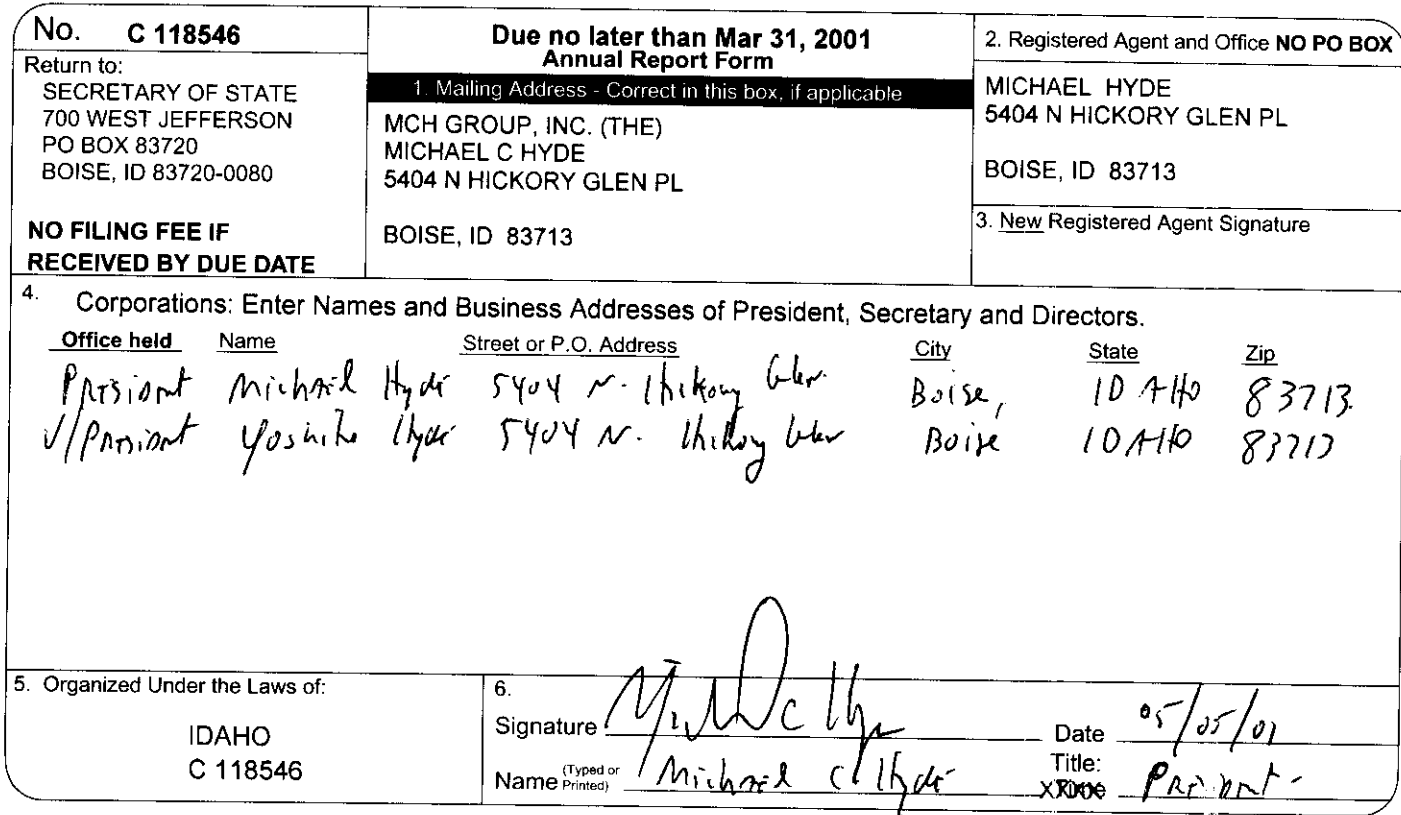 No. C 118546
Return to:
SECRETARY OF STATE
700 WEST JEFFERSON
PO BOX 83720
BOISE, ID 83720-0080
NO FILING FEE IF
RECEIVED BY DUE DATE
Due no later than Mar 31, 2001
Annual Report Form
1. Mailing Address - Correct in this box, if applicable
MCH GROUP, INC. (THE)
MICHAEL C HYDE
5404 N HICKORY GLEN PL
BOISE, ID 83713
2. Registered Agent and Office NO PO BOX
MICHAEL HYDE
5404 N HICKORY GLEN PL
BOISE, ID 83713
3. New Registered Agent Signature
4. Corporations: Enter Names and Business Addresses of President, Secretary and Directors.
Office held Name Street or P.O. Address City State Zip
President Michael Hyde 5404 N. Hickory Glen Boise, IDAHO 83713
V/President Hyde 5404 N. Hickory Glen Boise IDAHO 83713
5. Organized Under the Laws of:
IDAHO
C 118546
6.
Signature Date 05/05/01
Name (Typed or Printed) Michael C Hyde Title: President